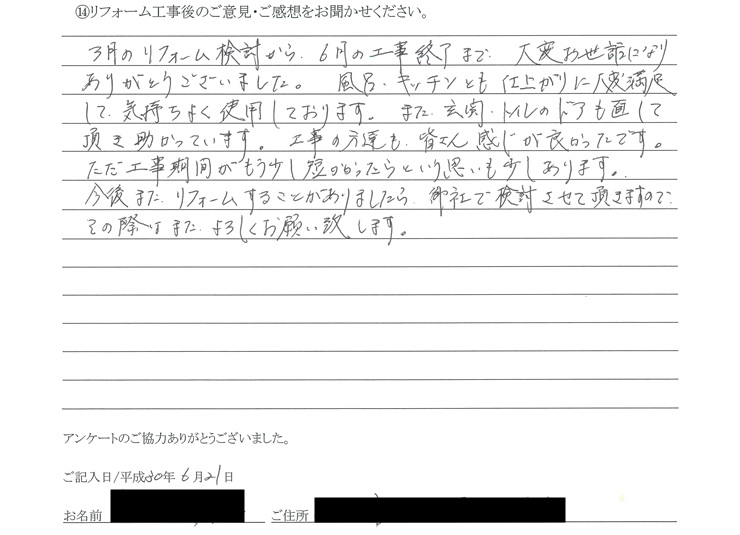 ⑭リフォーム工事後のご意見・ご感想をお聞かせください。
3月のリフォーム検討から、6月の工事終了まで、大変お世話になり
ありがとうございました。風呂、キッチンとも仕上がりに大変満足
して、気持ちよく使用しております。また、玄関・トイレのドアも直して
頂き助かっています。工事の方達も、皆さん感じが良かったです。
ただ工事期間がもう少し短かかったらという思いも少しあります。
今後また、リフォームすることがありましたら、御社で検討させて頂きますので、
その際はまた、よろしくお願い致します。
アンケートのご協力ありがとうございました。
ご記入日/平成30年6月21日
お名前 ご住所